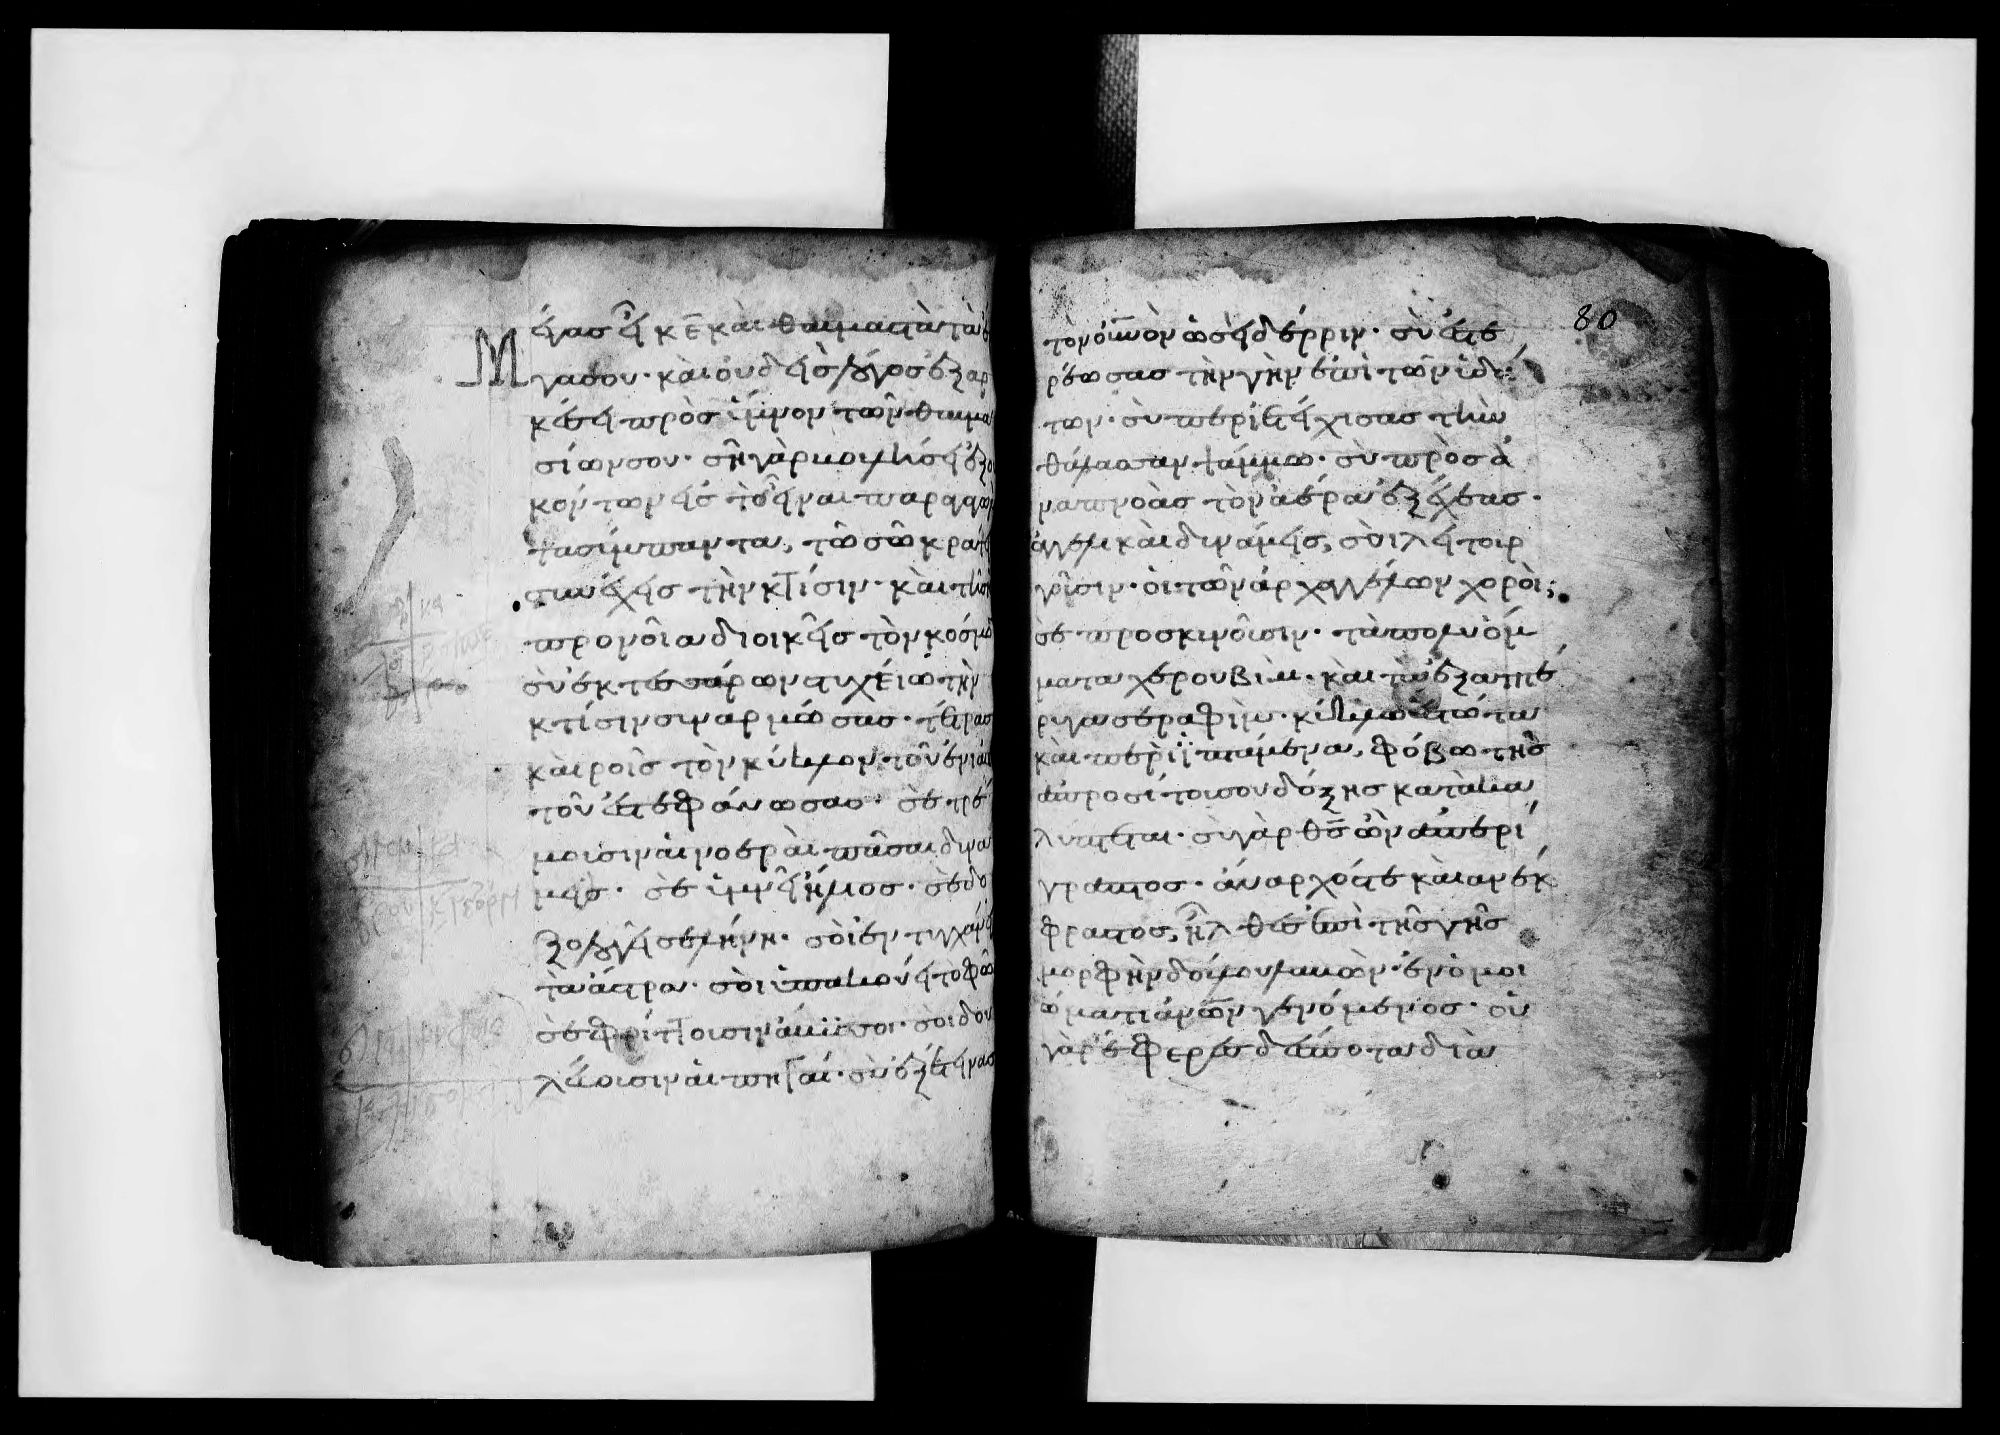 Μ
έγας εἶ κε̅ καὶ θαυμαστὰ τὰ ἔ
γα σου· καὶ οὐδεὶς λόγος ἐξαρ
κέσει πρὸς ὕμνον τῶν θαυμα
σίων σου· σὴ γὰρ βουλήσει ἐξ ου
κ όντων εἰς τὸ εἶναι παραγαγῶν
τὰ σύμπαντα, τῶ σῶ κράτει
συνέχεις τὴν κτίσιν· καὶ τῆ σῆ
προνοία διοικεῖς τὸν κόσμον
σὺ ἐκ τεσσάρων στυχείω τὴν
κτίσιν συναρμώσας· τέτρασ
καιροῖς τὸν κύκλον τοῦ ἐνιαυ
τοῦ ἐστεφάνωσας· σὲ τρέ
μουσιν αἱ νοεραὶ πᾶσαι δυνά
μεις· σὲ ὑμνεῖ ἥλιος· σὲ δο
ξολογεῖ σελήνη· σοὶ ἐντυγχάνει
τὰ άστρα· σοὶ ὑπακούει τὸ φῶς
σὲ φρίττουσιν άβυσσοι· σοὶ δου
λεύουσιν αἱ πηγαί· σὺ ἐξέτεινας
80
τὸν οὐ̅νὸν ὡσεὶ δέρριν· σὺ ἐστε
ρέωσας τὴν γὴν ἐπὶ τῶν ὑδά
των· σὺ περιετείχισας τὴν
θάλασσαν ψάμμω· σὺ πρὸς ἀ
ναπνοὰς τὸν ἀέρα ἐξέχεας·
ἀγγελικαὶ δυνάμεις, σοὶ λειτουρ
γοῦσιν· οἱ τῶν ἀρχαγγέλων χοροὶ,
σε προσκυνοῦσιν· τὰ πολυόμ
ματα χερουβὶμ· καὶ τὰ ἐξαπτέ
ρυγα σεραφὶμ· κύκλω ἑστῶτα
καὶ περιϊπτάμενα, φόβω τῆς
ἀπροσίτου σου δόξης κατακα
λύπτεται· σὺ γὰρ θς̅ ὢν ἀπερί
γραπτος· άναρχός τε καὶ ανέκ
φραστος, ἦλθες ἐπὶ τῆς γῆς
μορφὴν δούλου λαβὼν· ἐν ὁμοι
ώματι ἀνω̅ν γενόμενος· οὐ
γὰρ έφερες δέσποτα διὰ